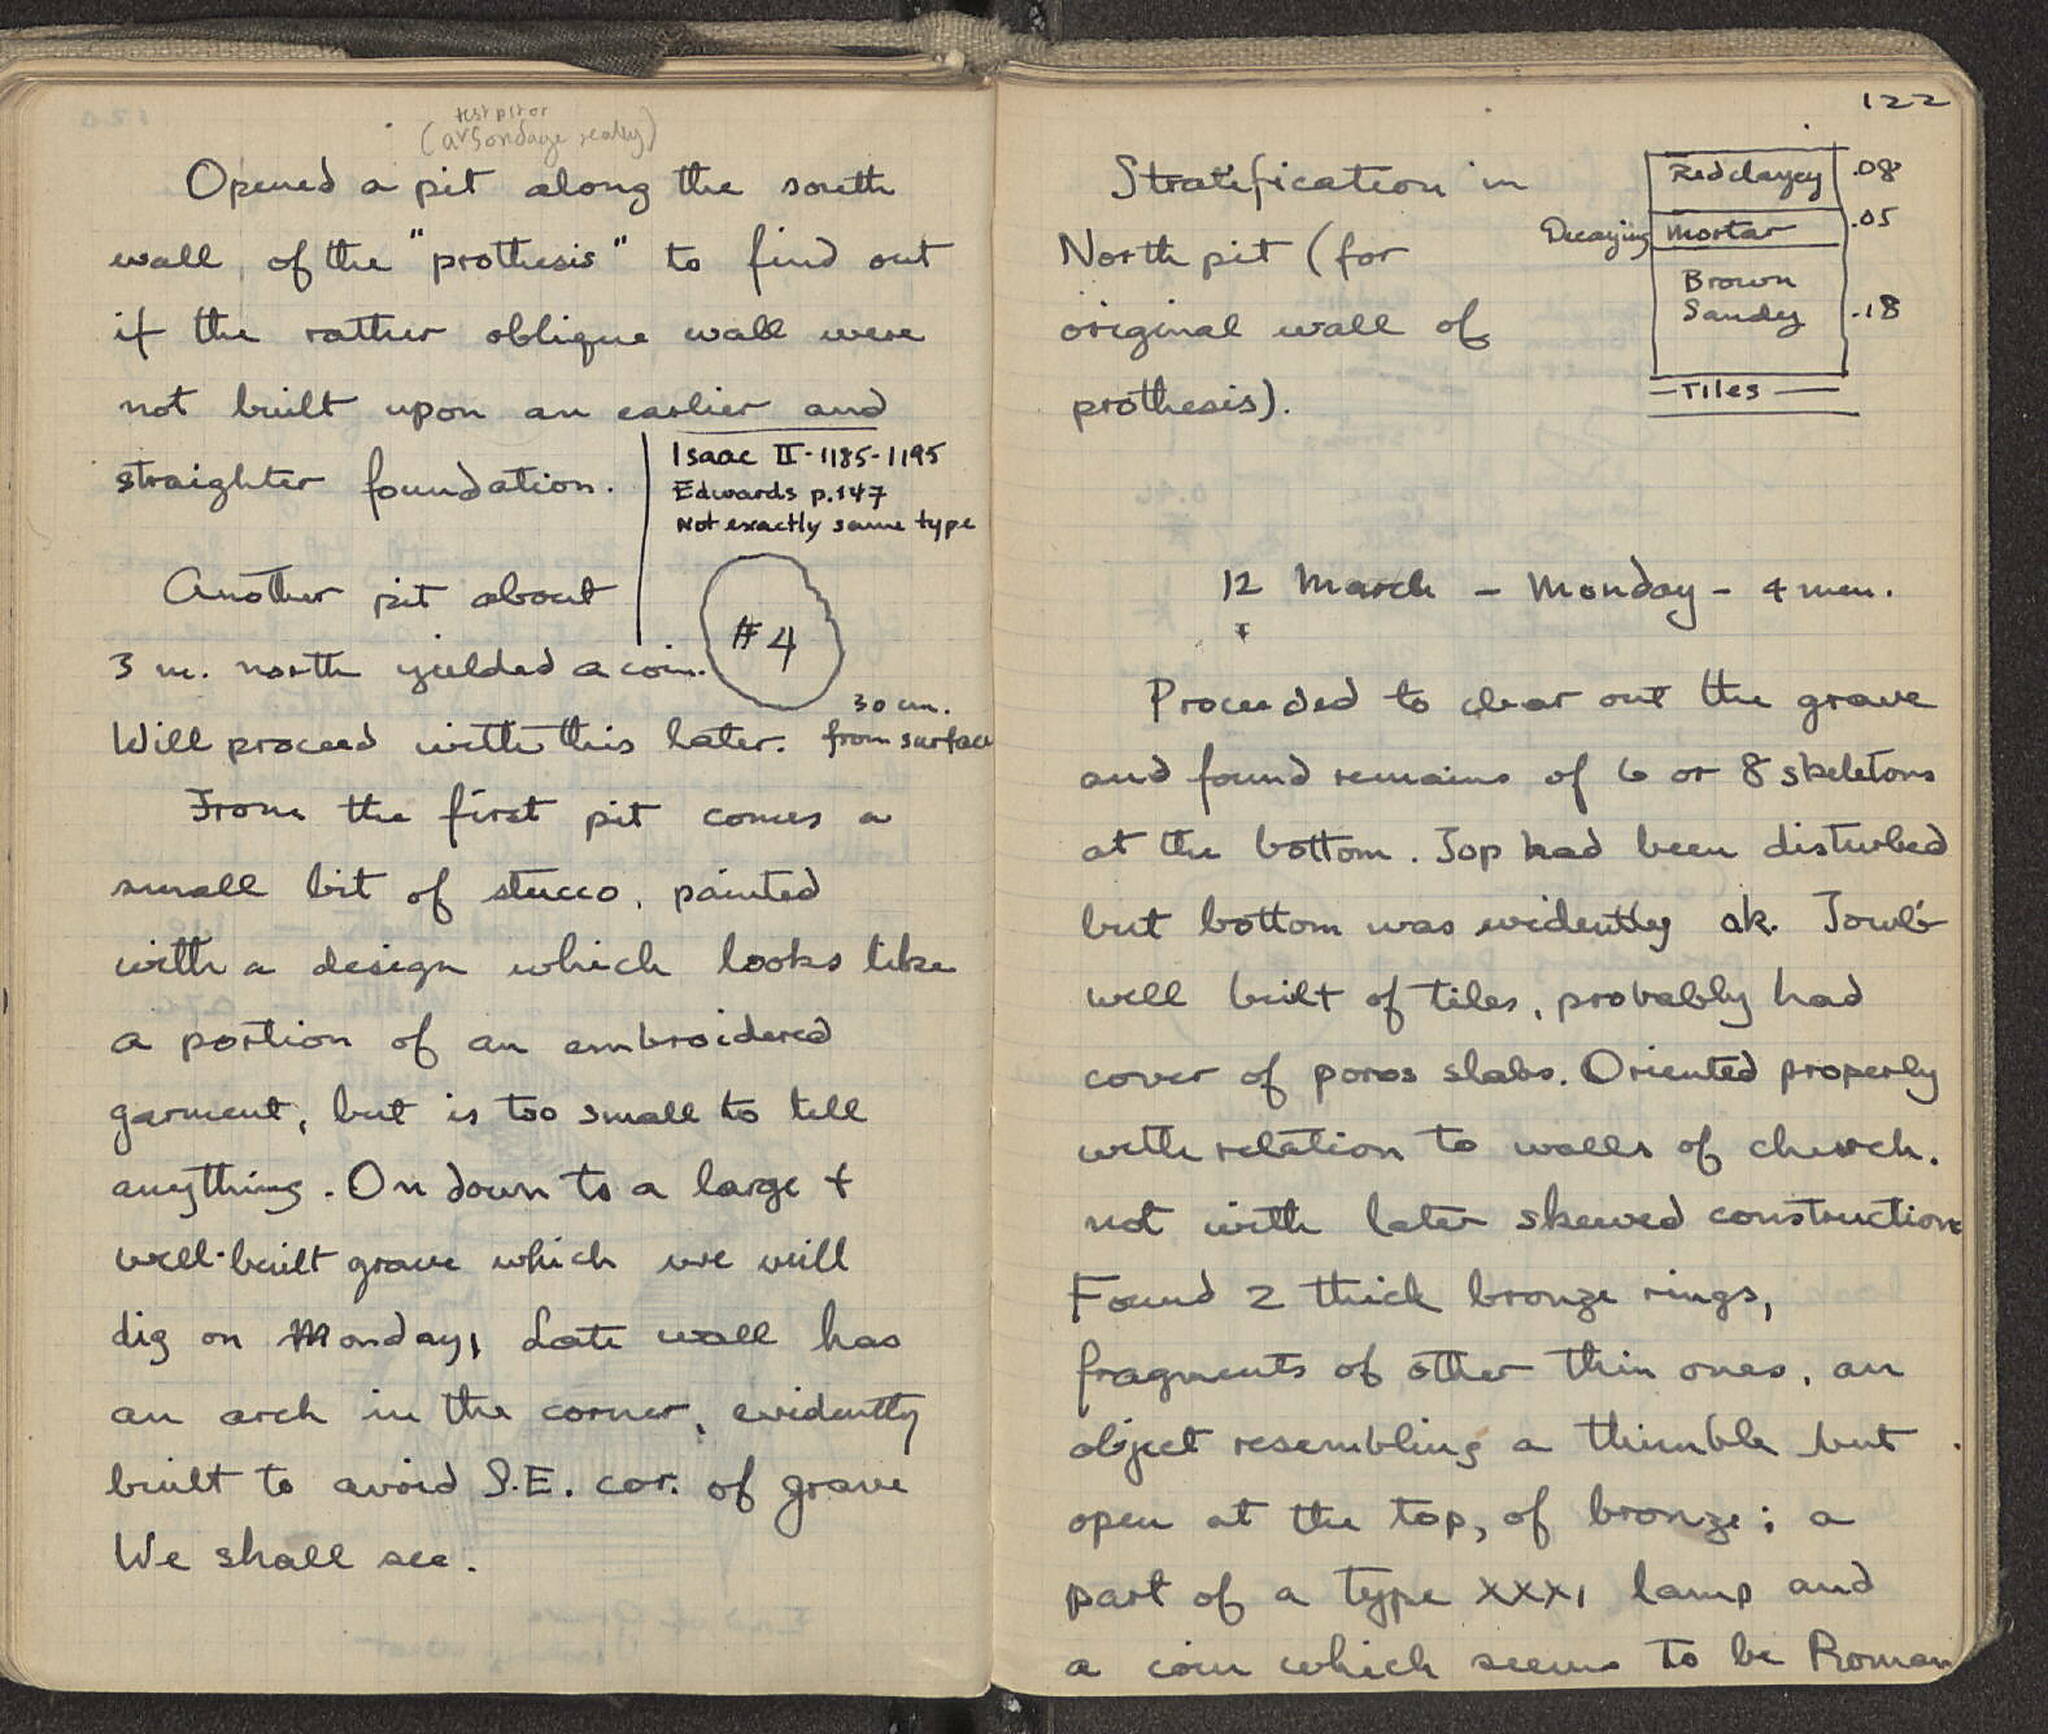 test pit or
(a ˅ sondage really)
Opened a pit along the south
wall, of the "prothesis" to find out
if the rather oblique wall were
not built upon an earlier and
straighter foundation.
Isaac II - 1185-1195
Edwards p. 147
Not exactly same type
Another pit about
#4
3 m. north yielded a coin.
30 cm.
from surface
Will proceed with this later.
From the first pit comes a
small bit of stucco, painted
with a design which looks like
a portion of an embroidered
garment, but is too small to tell
anything. On down to a large +
well-built grave which we will
dig on Monday, Late wall has
an arch in the corner, evidently
built to avoid S.E. cor. of grave
We shall see.
122
Stratification in
North pit (for
original wall of
prothesis).
Red clayey .08
Decaying mortar .05
Brown
Sandy .18
Tiles
12 March - Monday - 4 men.
Proceeded to clear out the grave
and found remains of 6 or 8 skeletons
at the bottom. Top had been disturbed
but bottom was evidently ok. Tomb
well built of tiles, probably had
cover of poros slabs. Oriented properly
with relation to walls of church.
not with later skewed construction
Found 2 thick bronze rings,
fragments of other thin ones, an
object resembling a thimble but
open at the top, of bronze; a
part of a type XXXI lamp and
a coin which seems to be Roman